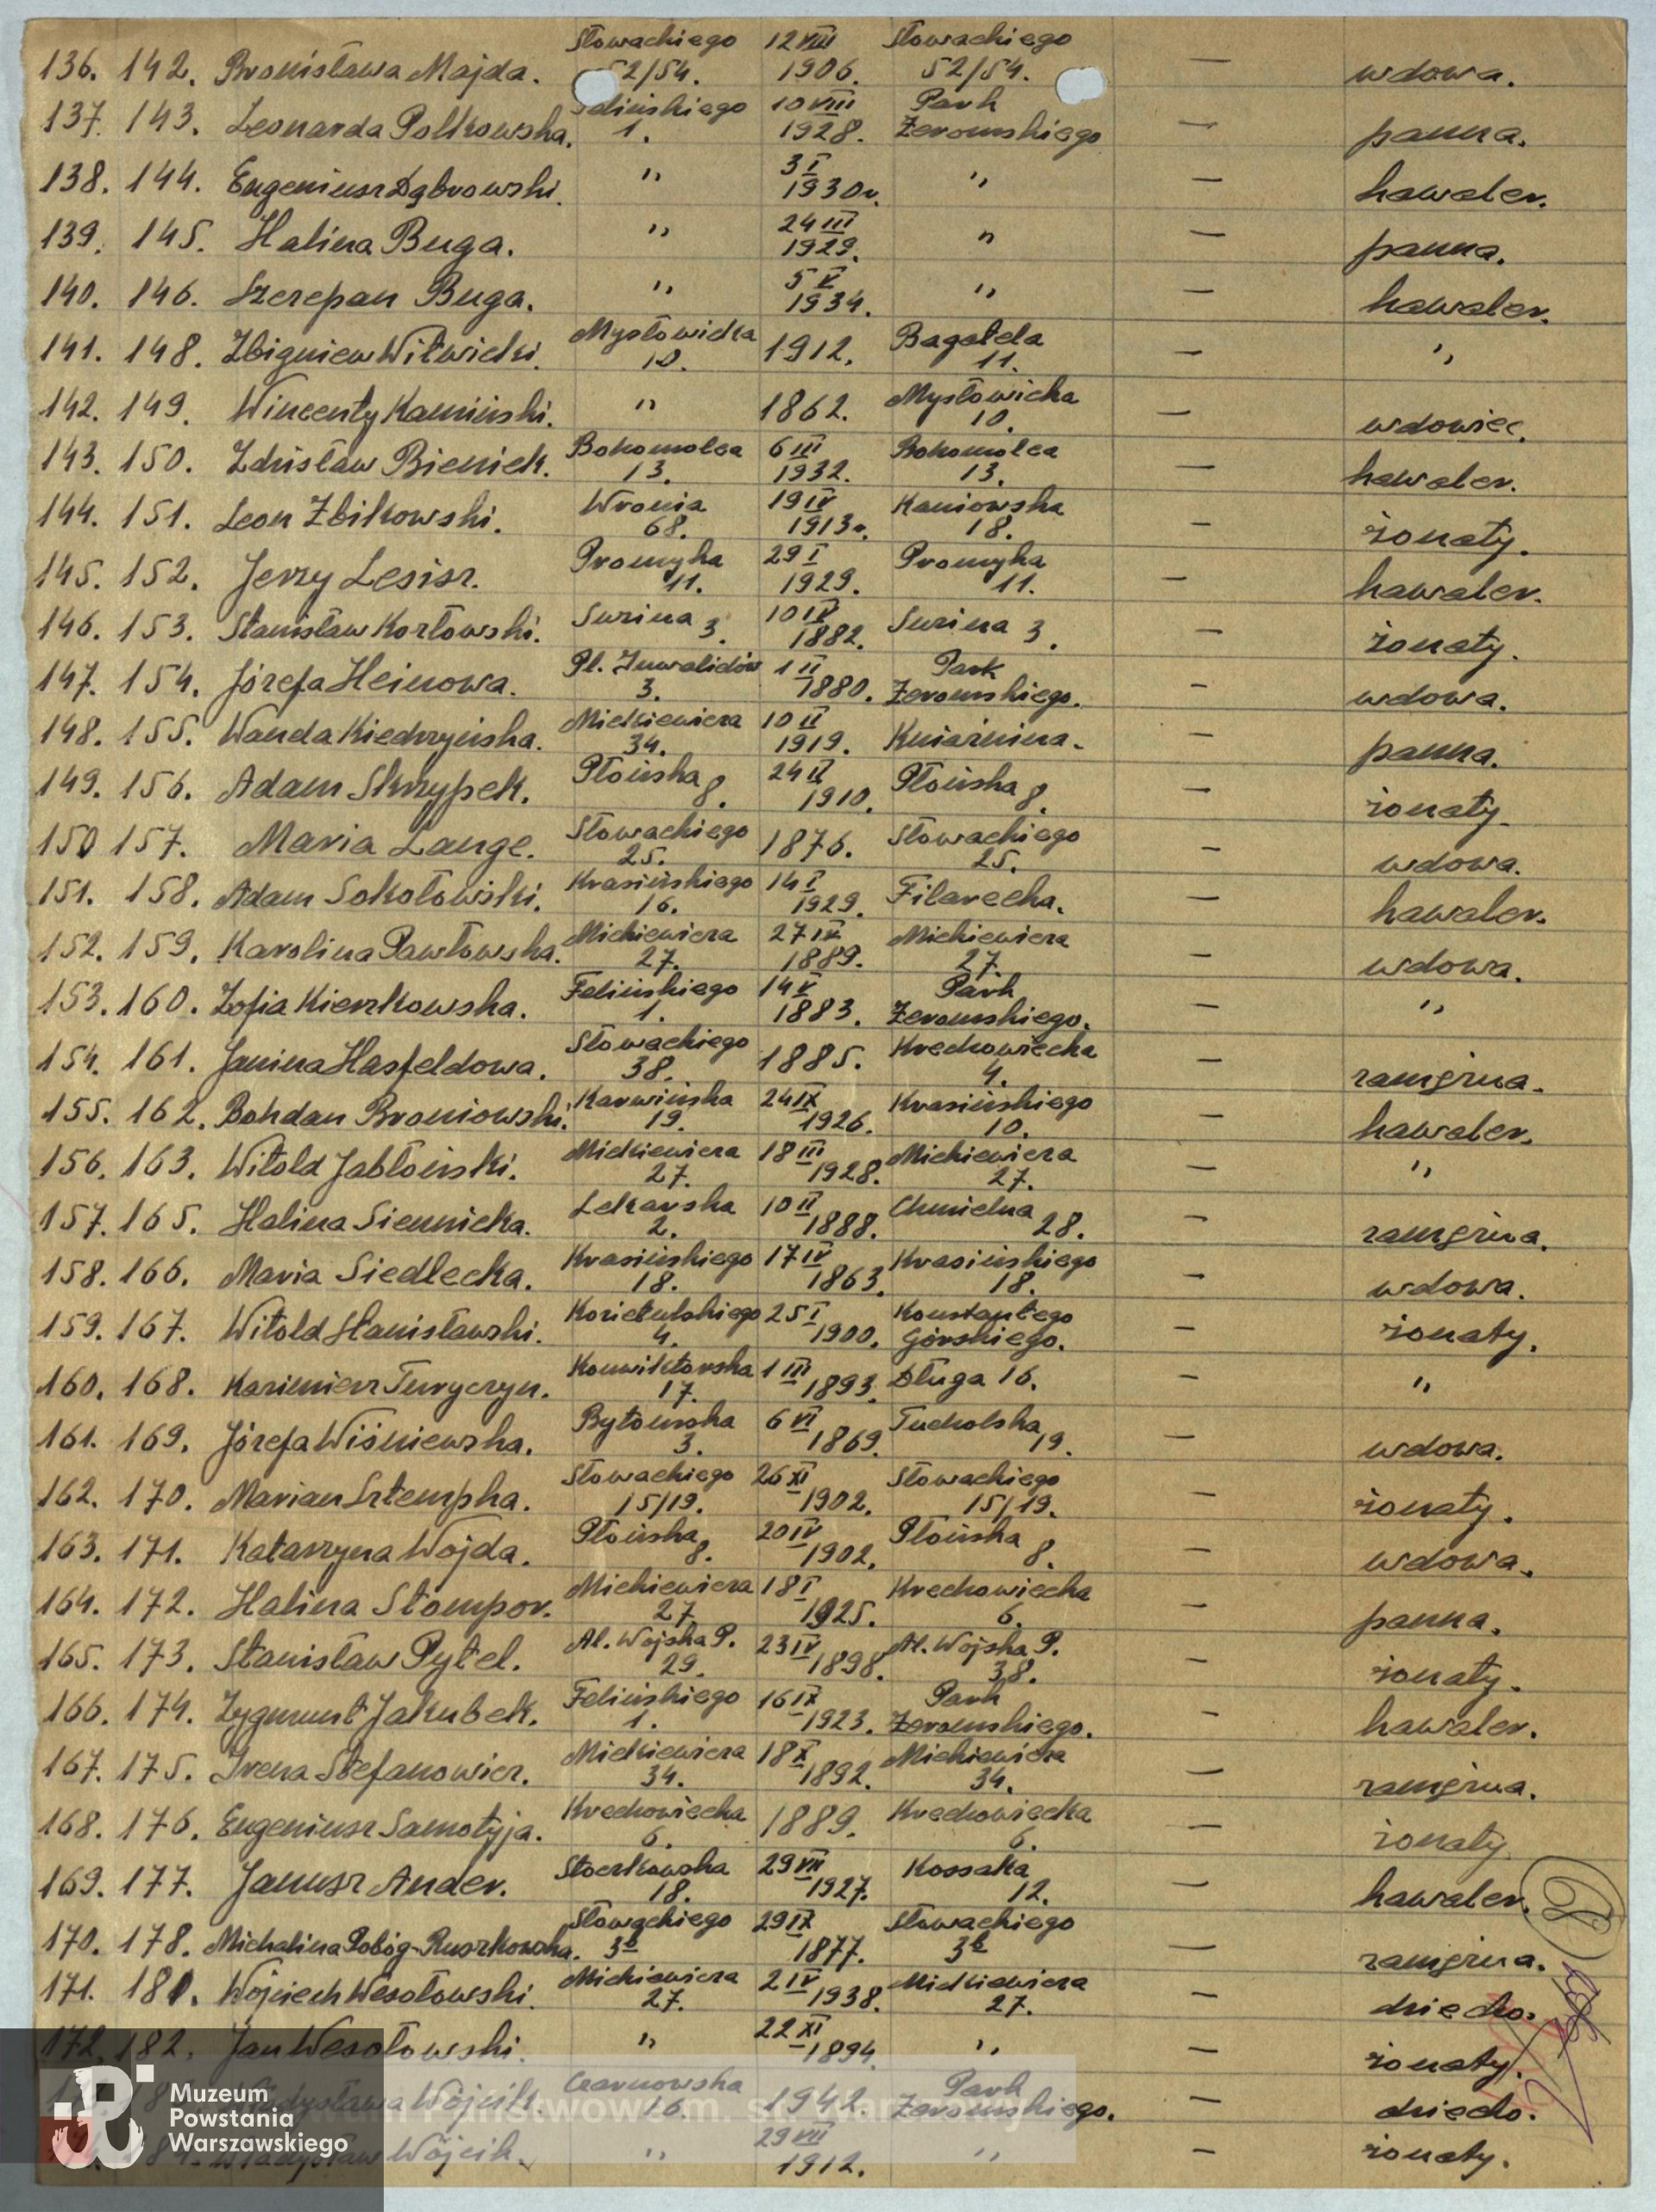 136. 142. Bronisława Majda. Słowackiego 52/54. 12 VIII 1906. Słowackiego 52/54. — wdowa.
137. 143. Leonarda Polkowska. Felińskiego 1. 10 VIII 1928. Park Żeromskiego — panna.
138. 144. Eugeniusz Dąbrowski. " 3 I 1930r. " — kawaler.
139. 145. Halina Buga. " 24 III 1929. " — panna.
140. 146. Szczepan Buga. " 5 V 1934. " — kawaler.
141. 148. Zbigniew Witwicki. Mysłowicka 10. 1912. Bagatela 11. — "
142. 149. Wincenty Kamiński. " 1862. Mysłowicka 10. — wdowiec.
143. 150. Zdzisław Bieniek. Bohomolca 13. 6 III 1932. Bohomolca 13. — kawaler.
144. 151. Leon Żbikowski. Wronia 68. 19 IV 1913r. Kaniowska 18. — żonaty.
145. 152. Jerzy Lesisz. Promyka 11. 29 I 1929. Promyka 11. — kawaler.
146. 153. Stanisław Kozłowski. Suzina 3. 10 IV 1882. Suzina 3. — żonaty.
147. 154. Józefa Heinowa. Pl. Inwalidów 3. 1 II 1880. Park Żeromskiego. — wdowa.
148. 155. Wanda Kiedrzyńska. Mickiewicza 34. 10 II 1919. Kniaźnina. — panna.
149. 156. Adam Skrzypek. Płońska 8. 24 II 1910. Płońska 8. — żonaty.
150 157. Maria Lange. Słowackiego 25. 1876. Słowackiego 25. — wdowa.
151. 158. Adam Sokołowski. Krasińskiego 16. 14 I 1929. Filarecka. — kawaler.
152. 159. Karolina Pawłowska. Mickiewicza 27. 27 IX 1889. Mickiewicza 27. — wdowa.
153. 160. Zofia Kierzkowska. Felińskiego 1. 14 V 1883. Park Żeromskiego. — "
154. 161. Janina Hasfeldowa. Słowackiego 38. 1885. Krechowiecka 4. — zamężna.
155. 162. Bohdan Broniowski. Karwińska 19. 24 IX 1926. Krasińskiego 10. — kawaler.
156. 163. Witold Jabłoński. Mickiewicza 27. 18 III 1928. Mickiewicza 27. — "
157. 165. Halina Siennicka. Lekarska 2. 10 II 1888. Chmielna 28. — zamężna.
158. 166. Maria Siedlecka. Krasińskiego 18. 17 IV 1863. Krasińskiego 18. — wdowa.
159. 167. Witold Stanisławski. Kozietulskiego 4. 25 I 1900. Konstantego Górskiego. — żonaty.
160. 168. Kazimierz Turyczyn. Konwiktorska 17. 1 III 1893. Długa 16. — "
161. 169. Józefa Wiśniewska. Bytomska 3. 6 VI 1869. Tucholska 19. — wdowa.
162. 170. Marian Sztempka. Słowackiego 15/19. 26 XI 1902. Słowackiego 15/19. — żonaty.
163. 171. Katarzyna Wojda. Płońska 8. 20 IV 1902. Płońska 8. — wdowa.
164. 172. Halina Stompor. Mickiewicza 27. 18 I 1925. Krechowiecka 6. — panna.
165. 173. Stanisław Pytel. Al. Wojska P. 29. 23 IV 1898. Al. Wojska P. 38. — żonaty.
166. 174. Zygmunt Jakubek. Felińskiego 1. 16 IX 1923. Park Żeromskiego. — kawaler.
167. 175. Irena Stefanowicz. Mickiewicza 34. 18 X 1892. Mickiewicza 34. — zamężna.
168. 176. Eugeniusz Samotyja. Krechowiecka 6. 1889. Krechowiecka 6. — żonaty.
169. 177. Janusz Ander. 18. 29 VII 1927. Kossaka 12. — kawaler.
170. 178. Michalina Pobóg-Ruszkowska. Słowackiego 3b 29 IX 1877. Słowackiego 3b — zamężna.
171. 181. Wojciech Wesołowski. Mickiewicza 27. 2 IV 1938. Mickiewicza 27. — dziecko.
172. 182. Jan Wesołowski. " 22 XI 1894. " — żonaty.
Władysława Wójcik. Czarnowska 16. 1942. Park Żeromskiego. — dziecko.
184. Władysław Wójcik. " 29 VII 1912. " — żonaty.
Muzeum
Powstania
Warszawskiego